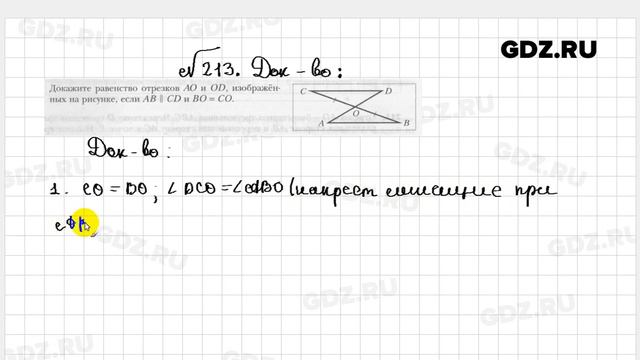 GDZ.RU
№213. Док-во:
Докажите равенство отрезков AO и OD, изображён-
ных на рисунке, если AB ∥ CD и BO = CO.
C D
O
A B
Док-во:
1. CO = BO; ∠DCO = ∠ABO (накрест лежащие при